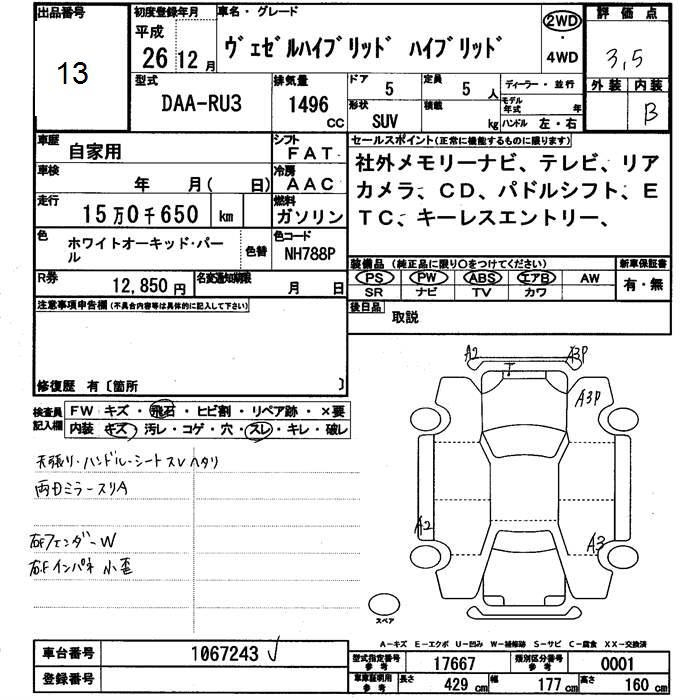 出品番号
13
初度登録年月
平成
26 12 月
車名・グレード
ヴェゼルハイブリッド ハイブリッド
2WD
・
4WD
評価点
3,5
外装 内装
B
型式
DAA-RU3
排気量
1496
CC
ドア
5
定員
5 人
形状
SUV
積載
kg
ディーラー・並行
モデル年式 年
ハンドル 左・右
車歴
自家用
シフト
FAT
車検
年 月( 日)
冷房
AAC
走行
15万0千650 km
燃料
ガソリン
色
ホワイトオーキッド・パール
色替
色コード
NH788P
R券
12,850円
名変通知期限
月 日
セールスポイント(正常に機能するものに限ります)
社外メモリーナビ、テレビ、リア
カメラ、CD、パドルシフト、E
TC、キーレスエントリー、
装備品 (純正品に限り○をつけてください)
PS PW ABS エアB AW
SR ナビ TV カワ
新車保証書
有・無
後日品
取説
注意事項申告欄(不具合内容等は具体的に記入して下さい)
修復歴 有〔箇所 〕
検査員記入欄
FW キズ・飛石・ヒビ割・リペア跡・×要
内装 キズ・汚レ・コゲ・穴・スレ・キレ・破レ
天張り・ハンドル・シートスレ ヘタリ
両Dミラースリ A
右Fフェンダー W
右Fインパネ 小歪
A2
A3P
T
A3P
A2
A3
スペア
A-キズ E-エクボ U-凹み W-補修跡 S-サビ C-腐食 XX-交換済
車台番号
1067243
登録番号
型式指定番号 参考
17667
類別区分番号 参考
0001
車庫証明用 参考
長さ 429 cm 幅 177 cm 高さ 160 cm